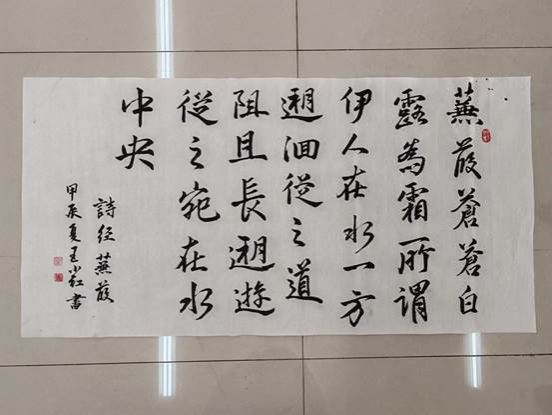 蒹葭蒼蒼白
露為霜所謂
伊人在水一方
遡洄從之道
阻且長遡遊
從之宛在水
中央
詩經蒹葭
甲辰夏王小紅書